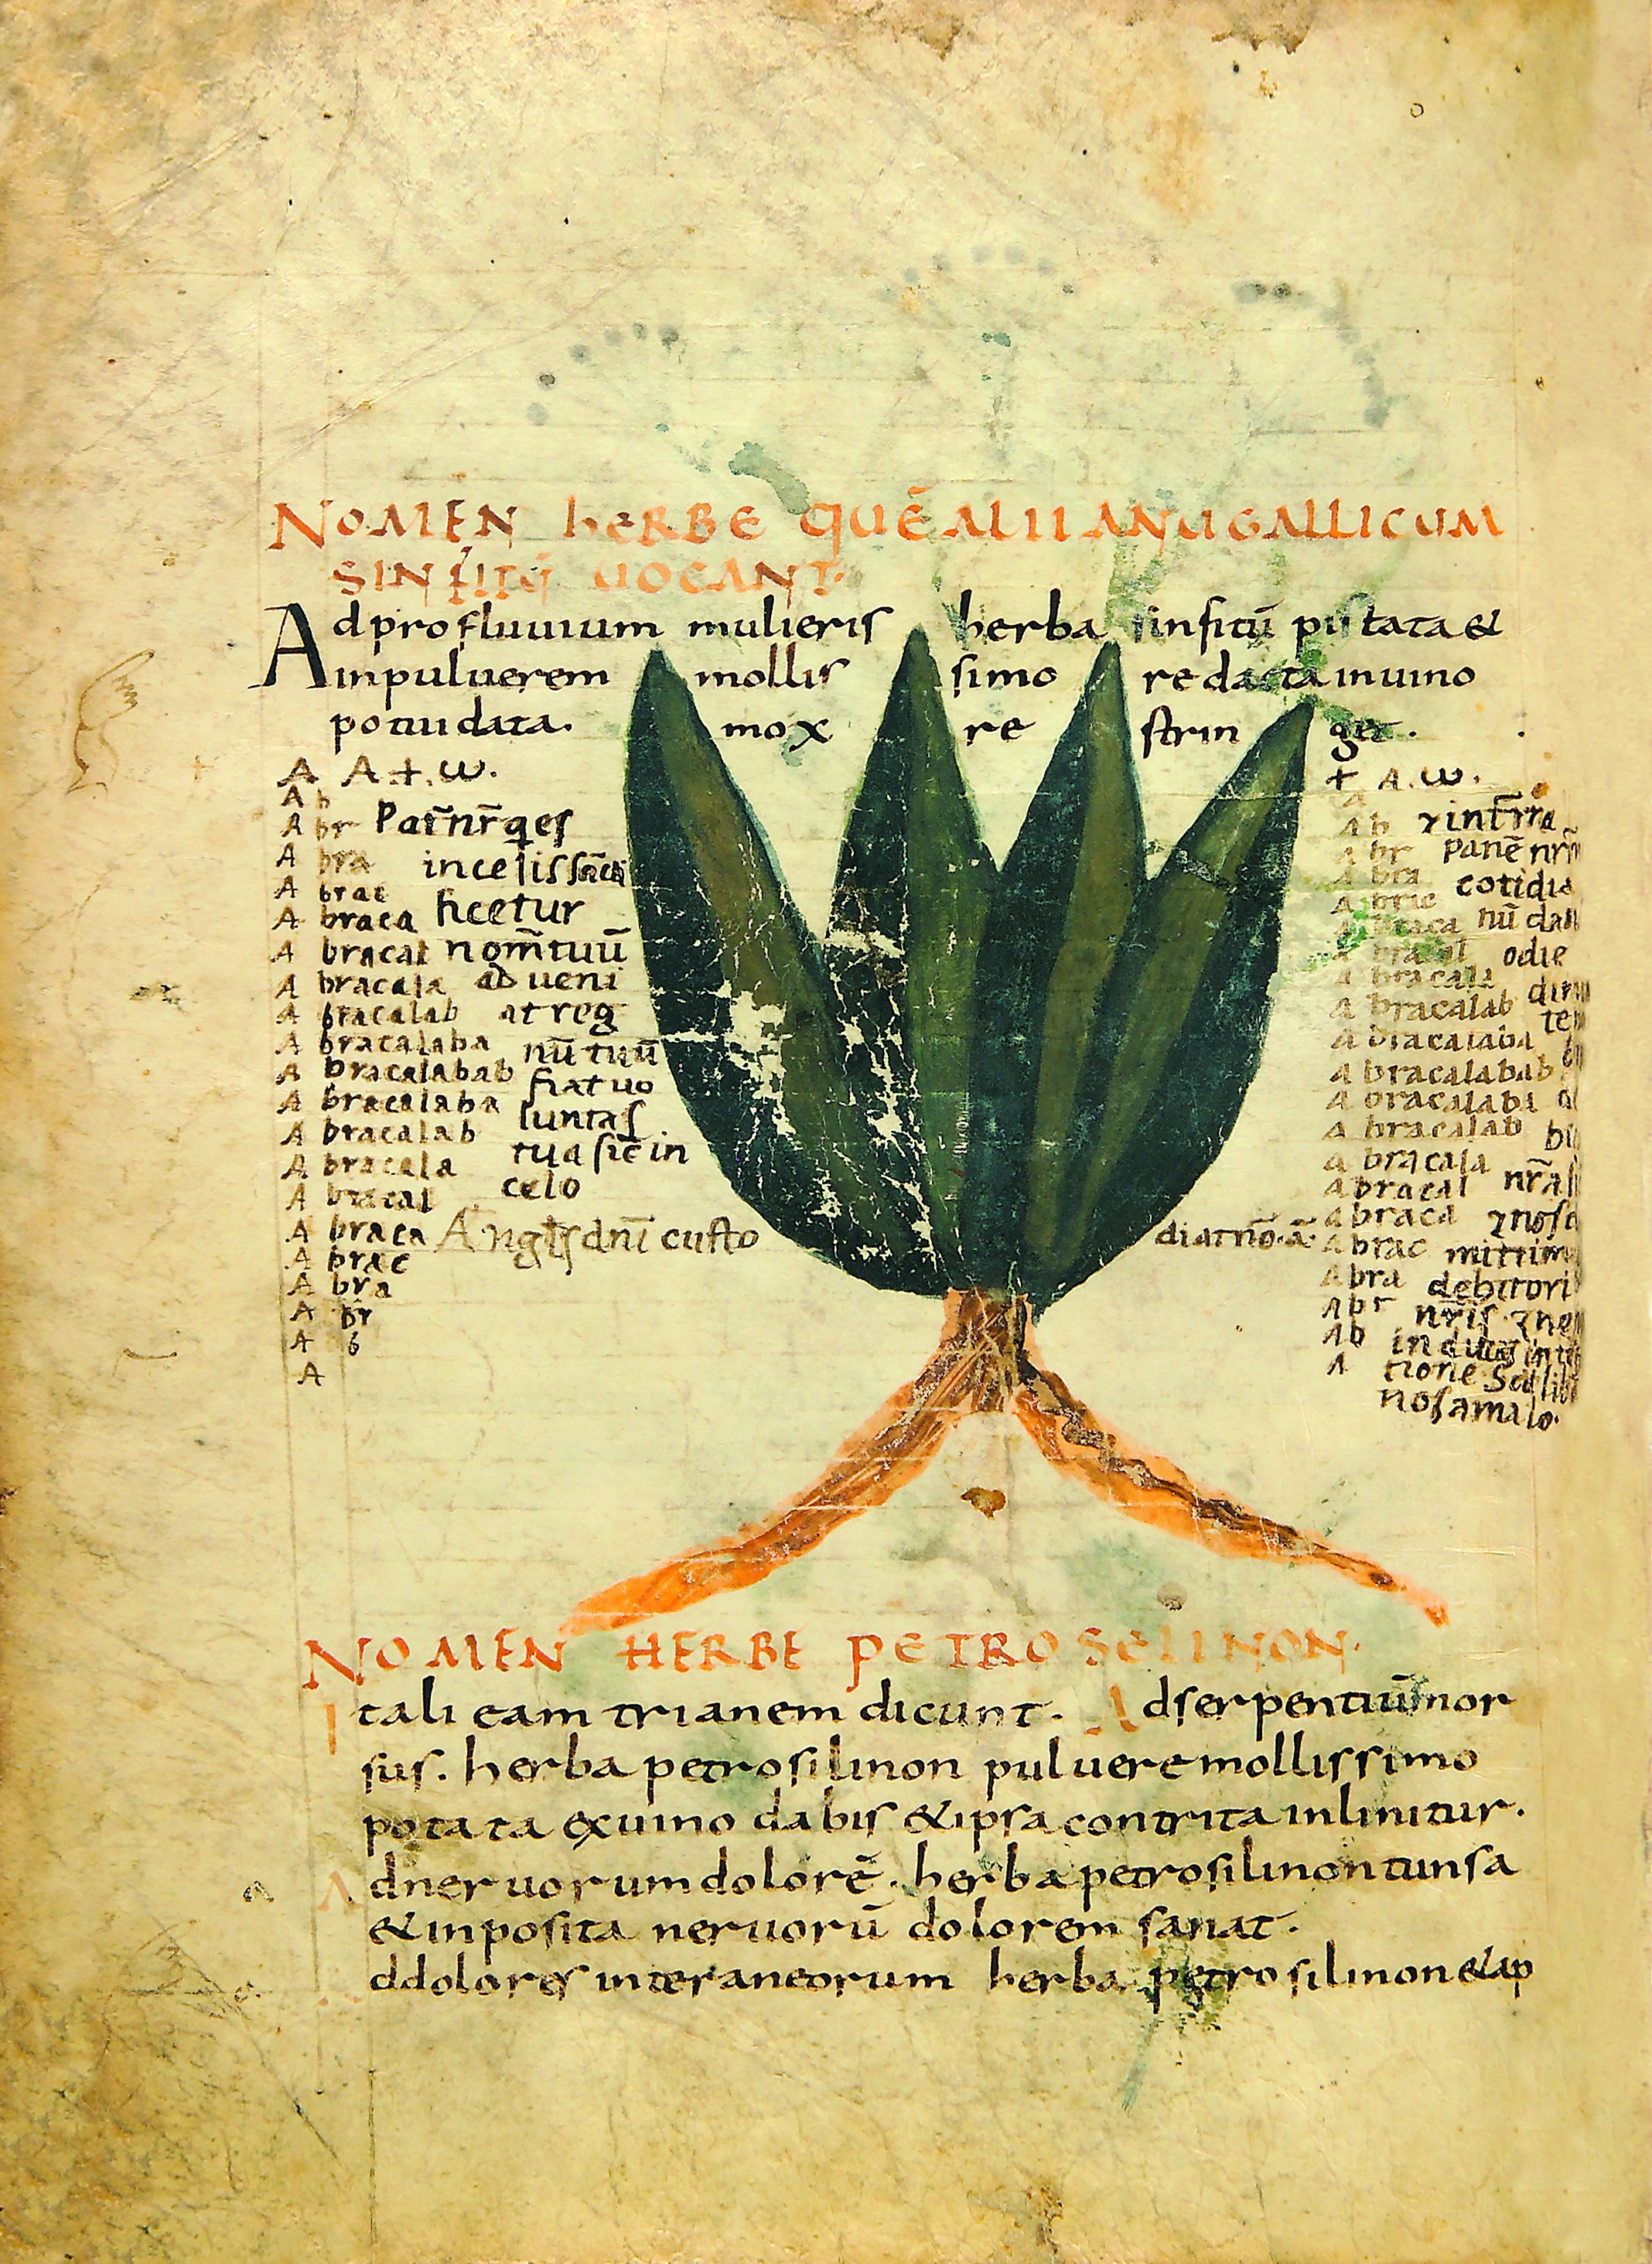 NOMEN hERBE QUĒ ALII ANUGALLICUM
SINFITŪ UOCANT.
Ad profluuium mulieris herba sinfitū pistata &
inpuluerem mollissimo redacta inuino
potui data. mox restringet.
A A + . ω.
A b
A br Pat̄ nr̄ q es
A bra in celis
A brac
A braca ficetur
A bracal nom̄ tuū
A bracala adueni
A bracalab at reg
A bracalaba nū tuū
A bracalabab fiat uo
A bracalaba luntas
A bracalab tua sic̄ in
A bracala
A bracal celo
A braca Angls dnī custo
A brac
A bra
A br
A b
A
+ A. ω.
A
A b ⁊ int̄rra
A br panē nr̄
A bra cotidia
A brac
A braca nū da
A bracal odie
A bracala
A bracalab dim
A bracalaba te
A bracalabab
A bracalaba
A bracalab
A bracala
A bracal nr̄a
diatrio. a. A braca ⁊ nos
A brac mittim
A bra debitori
A br nr̄is ⁊ ne
A b inducas inte
A tione Sed lib
nos amalo.
NOMEN HERBE PETROSELINON.
Itali eam trianem dicunt. Ad serpentiū mor
sus. herba petrosilinon puluere mollissimo
potata exuino dabis & ipsa contrita inlinitur.
Ad neruorum dolorē. herba petrosilinon tunsa
& inposita neruorū dolorem sanat.
d dolores interaneorum herba petrosilinon & ap